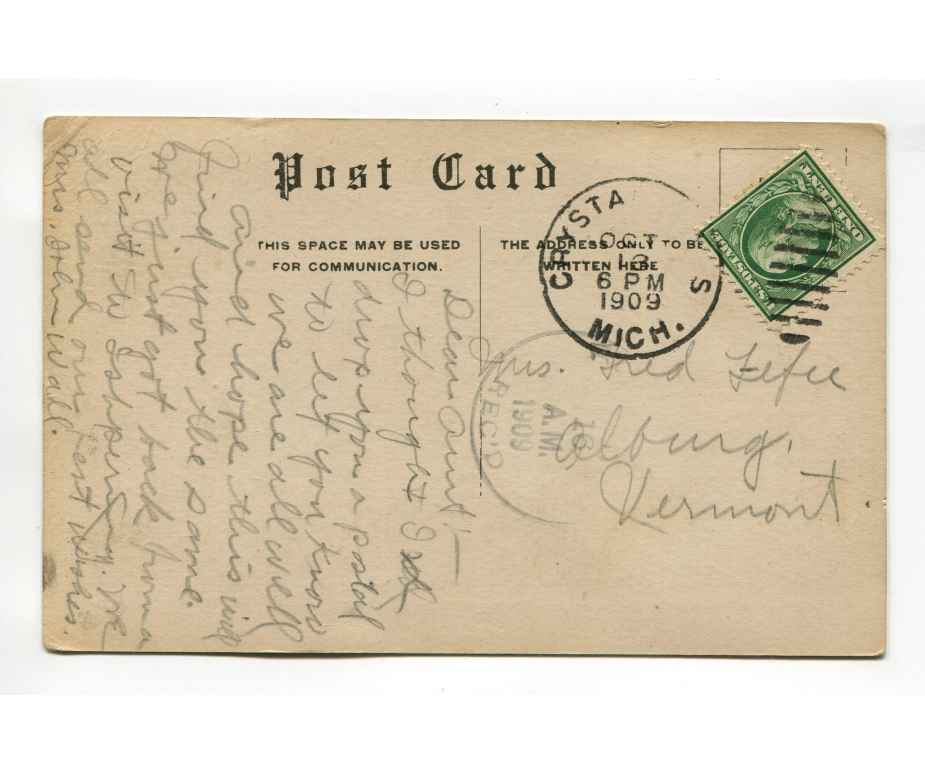 Post Card
THIS SPACE MAY BE USED
FOR COMMUNICATION.
THE ADDRESS ONLY TO BE
WRITTEN HERE
CRYSTA S
MICH.
OCT
13
6 PM
1909
Mrs. Fred
Alburg,
Vermont
A.M.
1909
REC'D
Dear Aunt:—
I thought I
drop you a postal
to let you know
we are all well
and hope this will
find you the same.
have just got back from a
visit to we
all send our best wishes.
Mrs. John Wall.